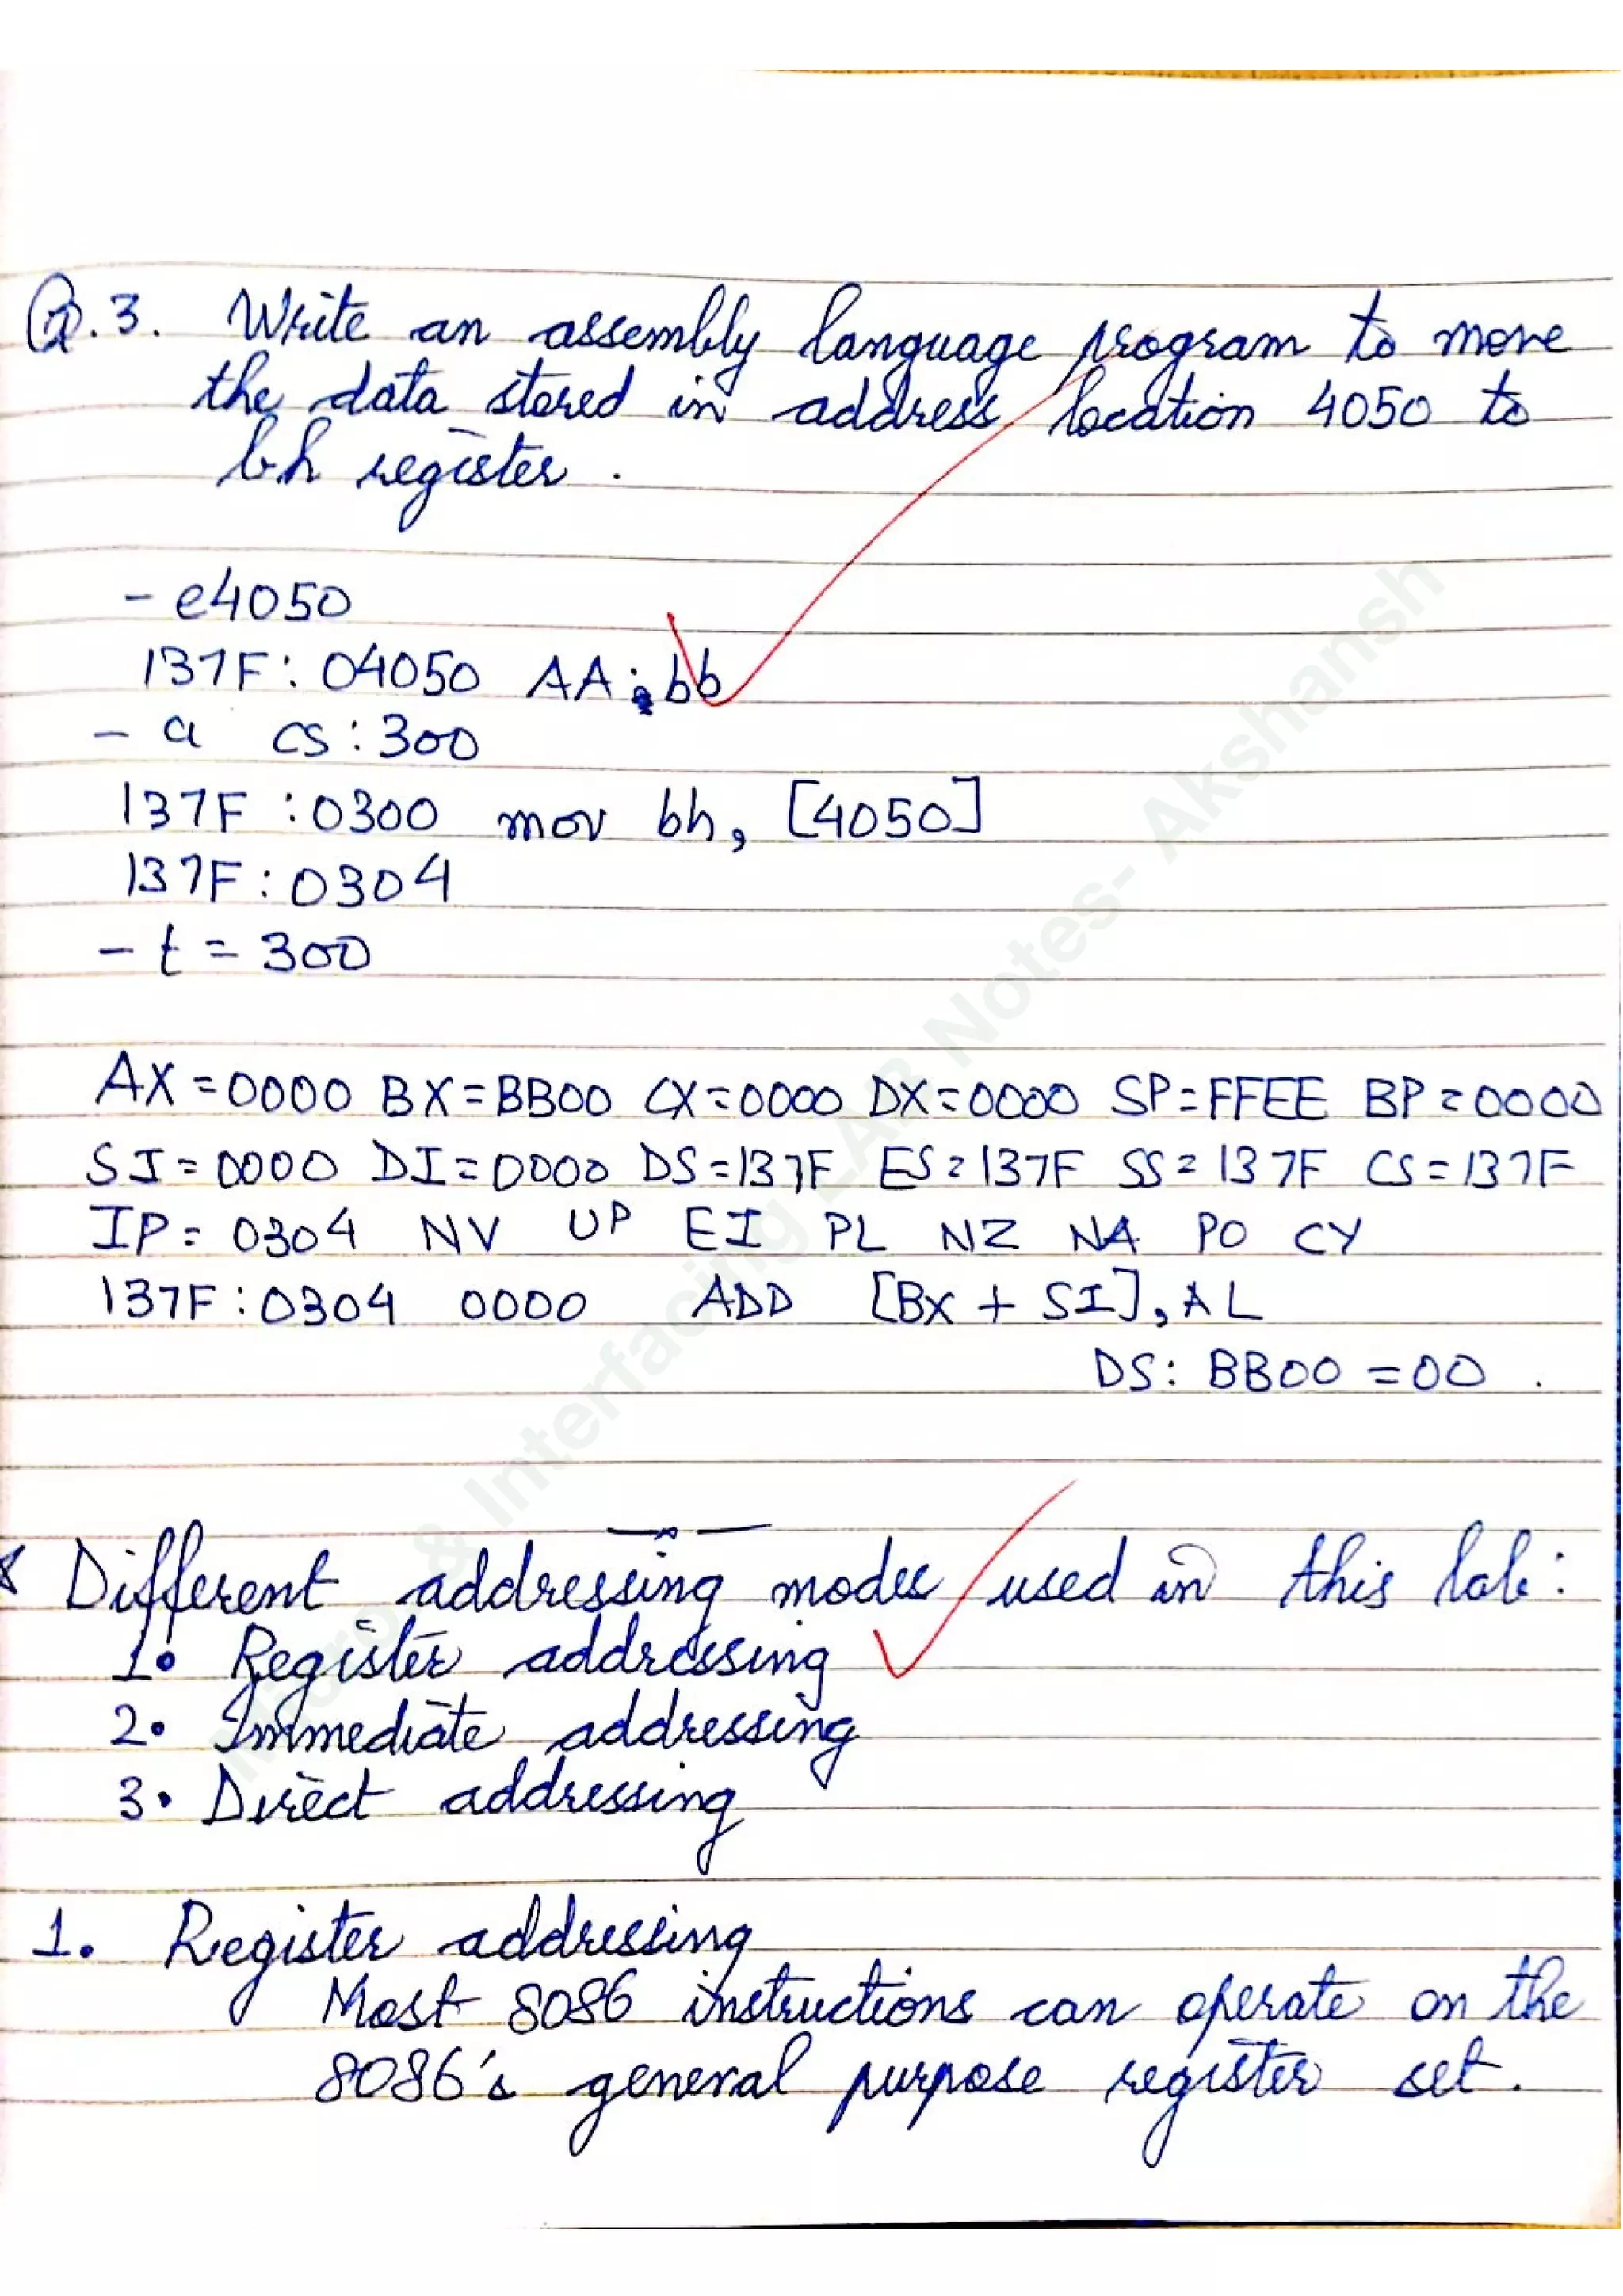 Q.3. Write an assembly language program to move
the data stored in address location 4050 to
bh register.
- e4050
137F : 04050 AA : bb
- a cs : 300
137F : 0300 mov bh, [4050]
137F : 0304
- t = 300
AX = 0000 BX = BB00 CX = 0000 DX = 0000 SP = FFEE BP = 0000
SI = 0000 DI = 0000 DS = 137F ES = 137F SS = 137F CS = 137F
IP = 0304 NV UP EI PL NZ NA PO CY
137F : 0304 0000 ADD [BX + SI], AL
DS : BB00 = 00 .
Different addressing modes used in this lab :
1. Register addressing
2. Immediate addressing
3. Direct addressing
1. Register addressing
Most 8086 instructions can operate on the
8086's general purpose register set.
Micro & Interfacing LAB Notes- Akshansh